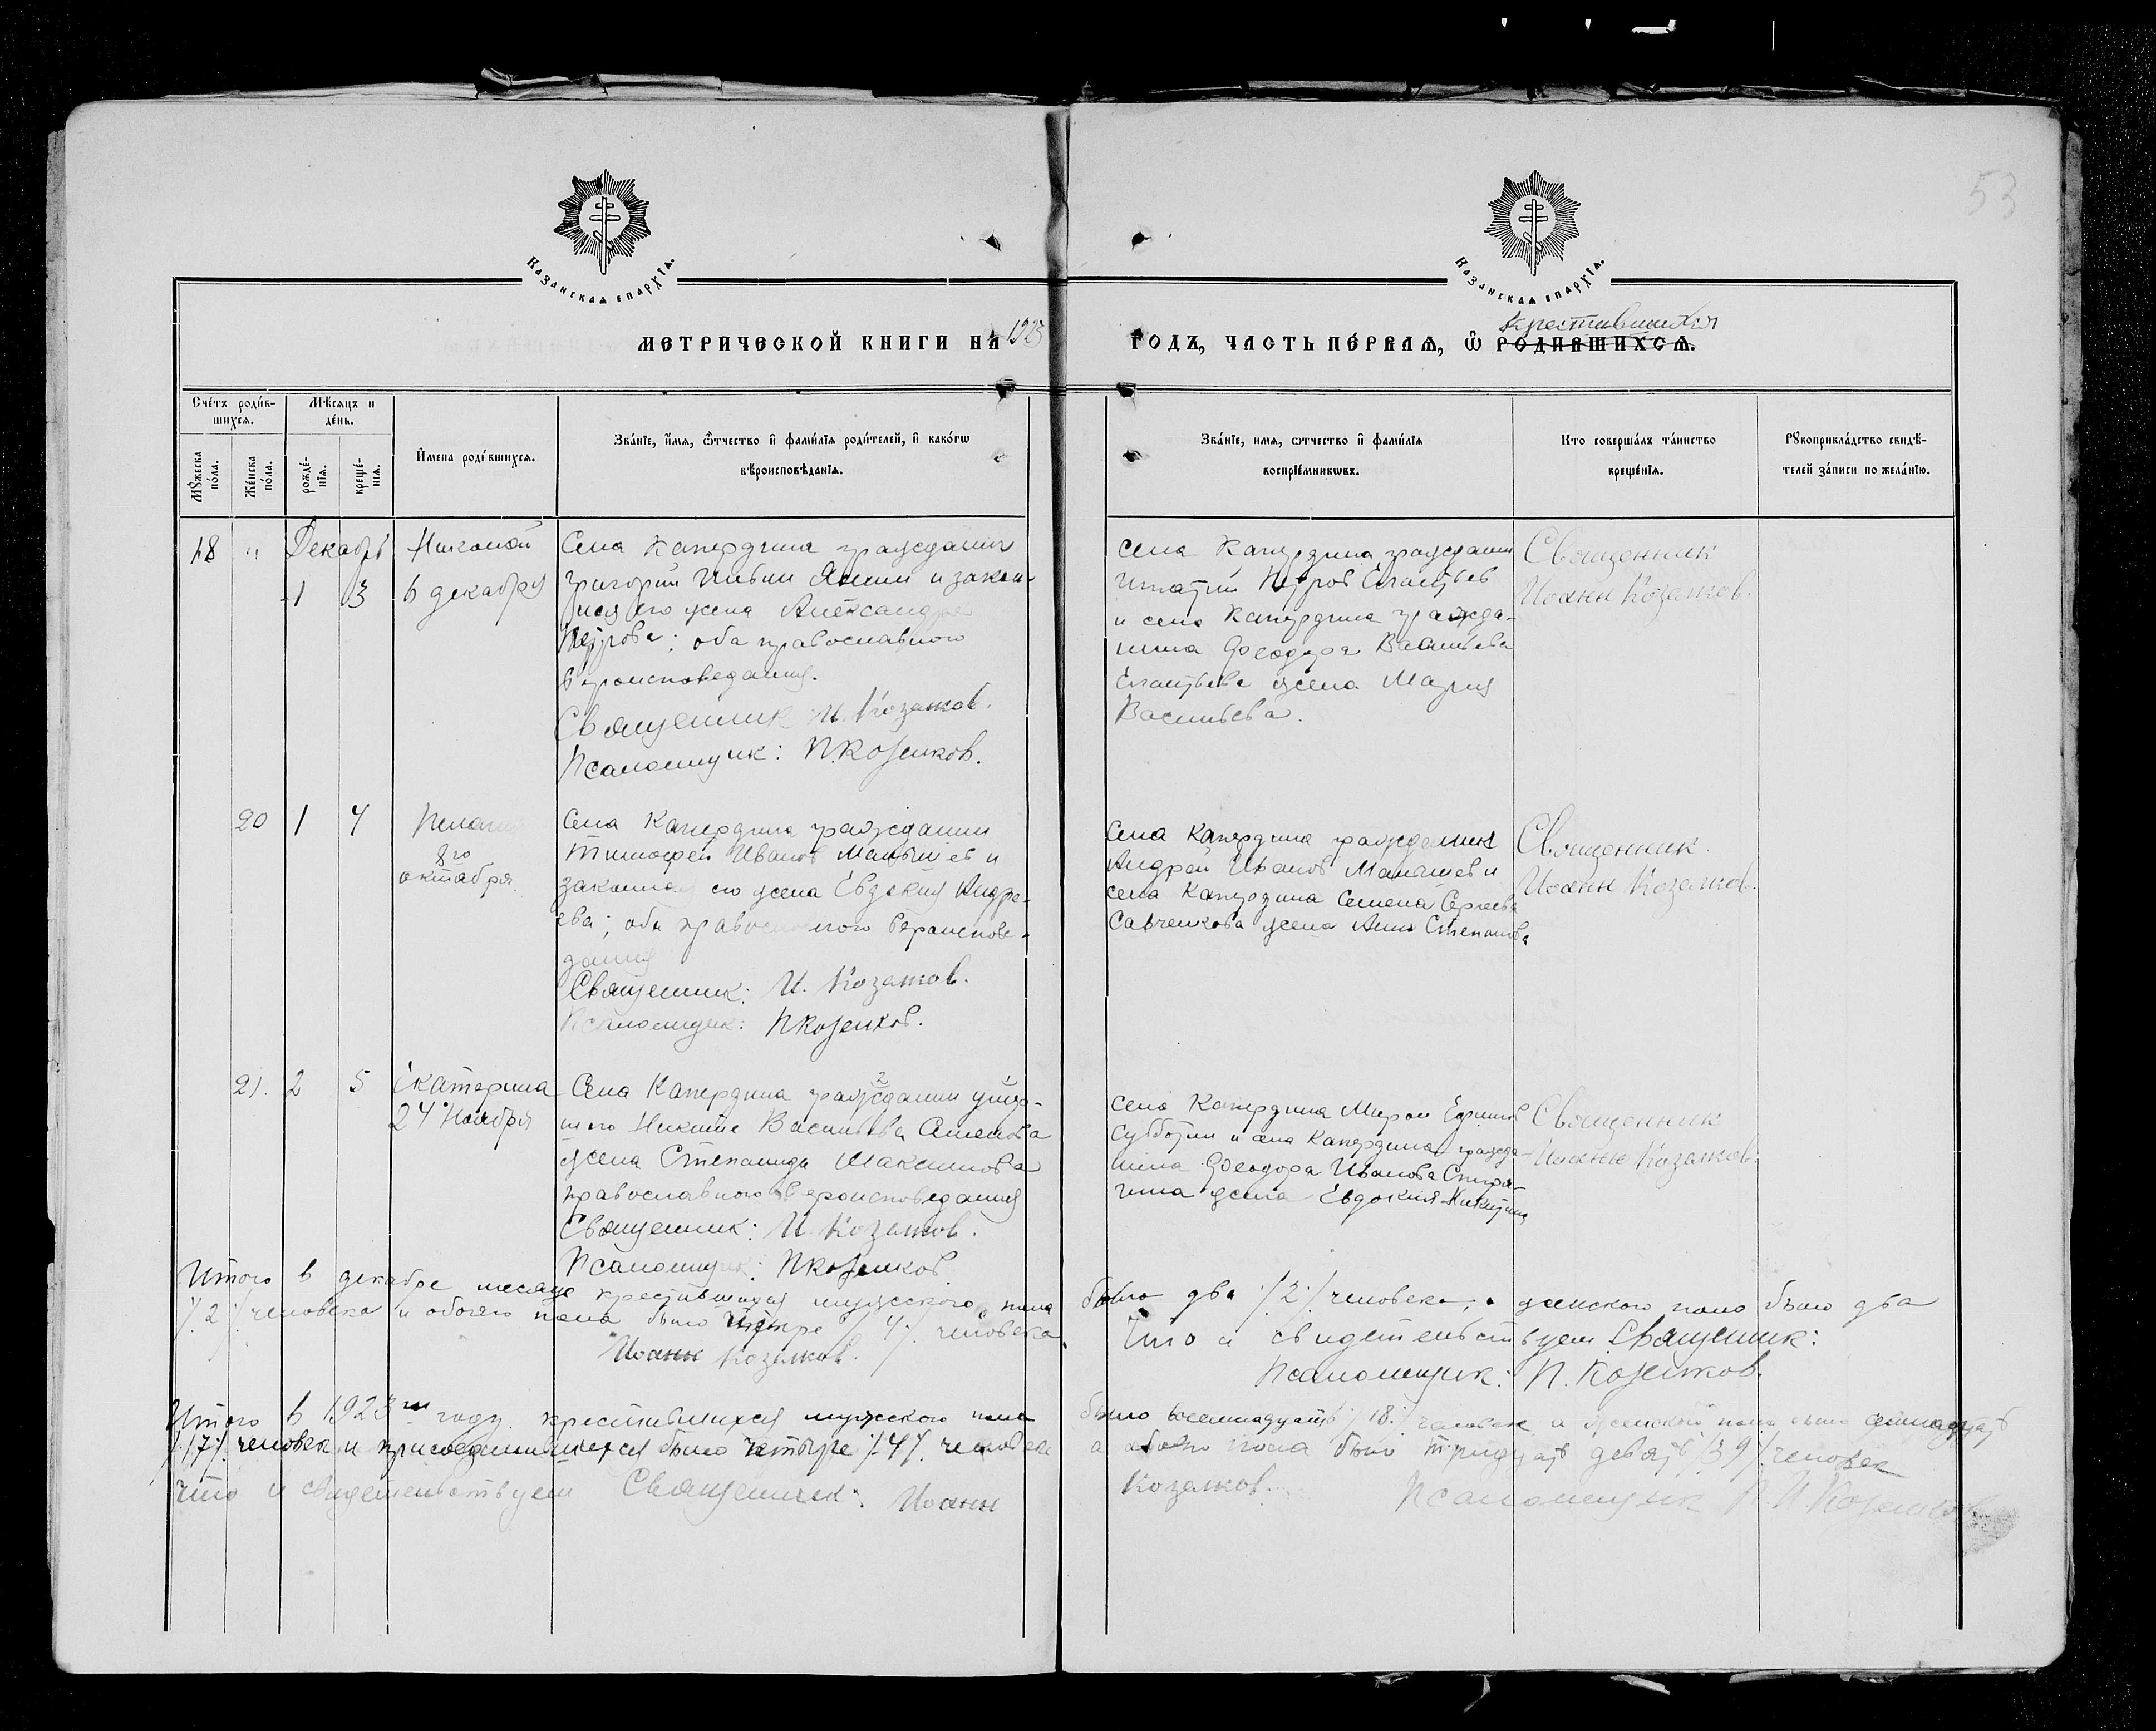 53
Казанская епархїѧ.
Казанская епархїѧ.
МЕТРИЧЕСКОЙ КНИГИ НА 1923
ГОДЪ, ЧАСТЬ ПЕРВАЯ, Ѿ РОДИВШИХСЯ.
крестившихся
Счетъ родив-
шихся.
Мѣсяцъ и
день.
Мужеска
пола.
Женска
пола.
рожде-
нїя.
креще-
нїя.
Имена родившихся.
Званїе, имя, отчество и фамилїя родителей, и какогѡ
вѣроисповѣданїя.
Званїе, имя, отчество и фамилїя
воспрїемникѡвъ.
Кто совершалъ таинство
крещенїя.
Рукоприкладство свидѣ-
телей записи по желанїю.
18 " Декабрь
1 3
6 декабря
Села Капердина гражданин
Григорий и закон-
ная его жена Александра
Петрова; оба православного
вероисповедания.
Священник И. Козалков.
Псаломщик: П.
села Капердина гражданин
Игнатий Петров Елантьев
и села Капердина гражда-
нина Феодора Васильева
Елантьева жена Мария
Васильева.
Священник
Иоанн Козалков.
20 1 4 Пелагия
8го
октября.
Села Капердина гражданин
Тимофей Иванов Малышев и
законная его жена Евдокия Андре-
ева; оба православного вероисповеда-
дания
Священник: И. Козалков.
Псаломщик: П.
Села Капердина гражданин
Андрей Иванов Малышев и
села Капердина Семена Сергеева
Савченкова жена Анна Степанова
Священник.
Иоанн Козалков.
21. 2 5 Екатерина
24 Ноября
Села Капердина гражданин умер-
шего Никиты Васильева Семенова
жена Степанида Максимова
православного вероисповедания
Священник: И. Козалков.
Псаломщик: П.
села Капердина Мирон Ефимов
Субботин и села Капердина гражда-
нина Феодора Иванова Спиря-
гина жена Евдокия Никитина
Священник
Иоанн Козалков.
Итого в декабре месяце крестившихся мужского пола было два /2/ человека, а женского пола было два
/2/ человека и обоего пола было четыре /4/ человека Что и свидетельствуем Священник:
Иоанн Козалков. Псаломщик: П.
Итого в 1923м году крестившихся мужского пола было восемнадцать /18/ человек а женского пола было семнадцать
/17/ человек и присоединившихся было четыре /4/ человека а обоего пола было тридцать девять /39/ человек
что и свидетельствуем Священник: Иоанн Козалков. Псаломщик П. И.